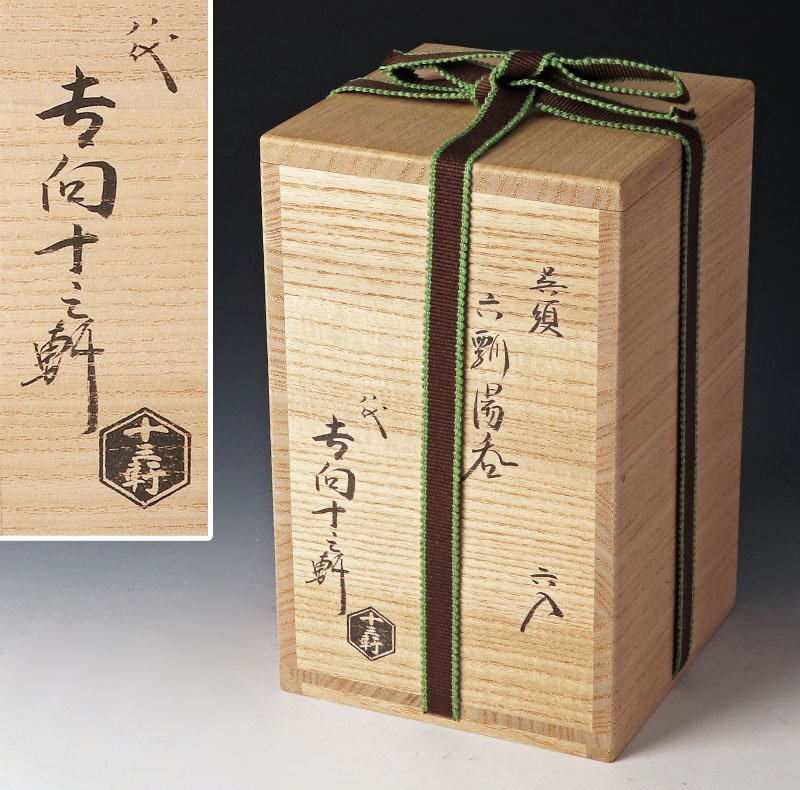 八代
吉向十三軒
十三軒
呉須
六瓢湯呑
六入
八代
吉向十三軒
十三軒